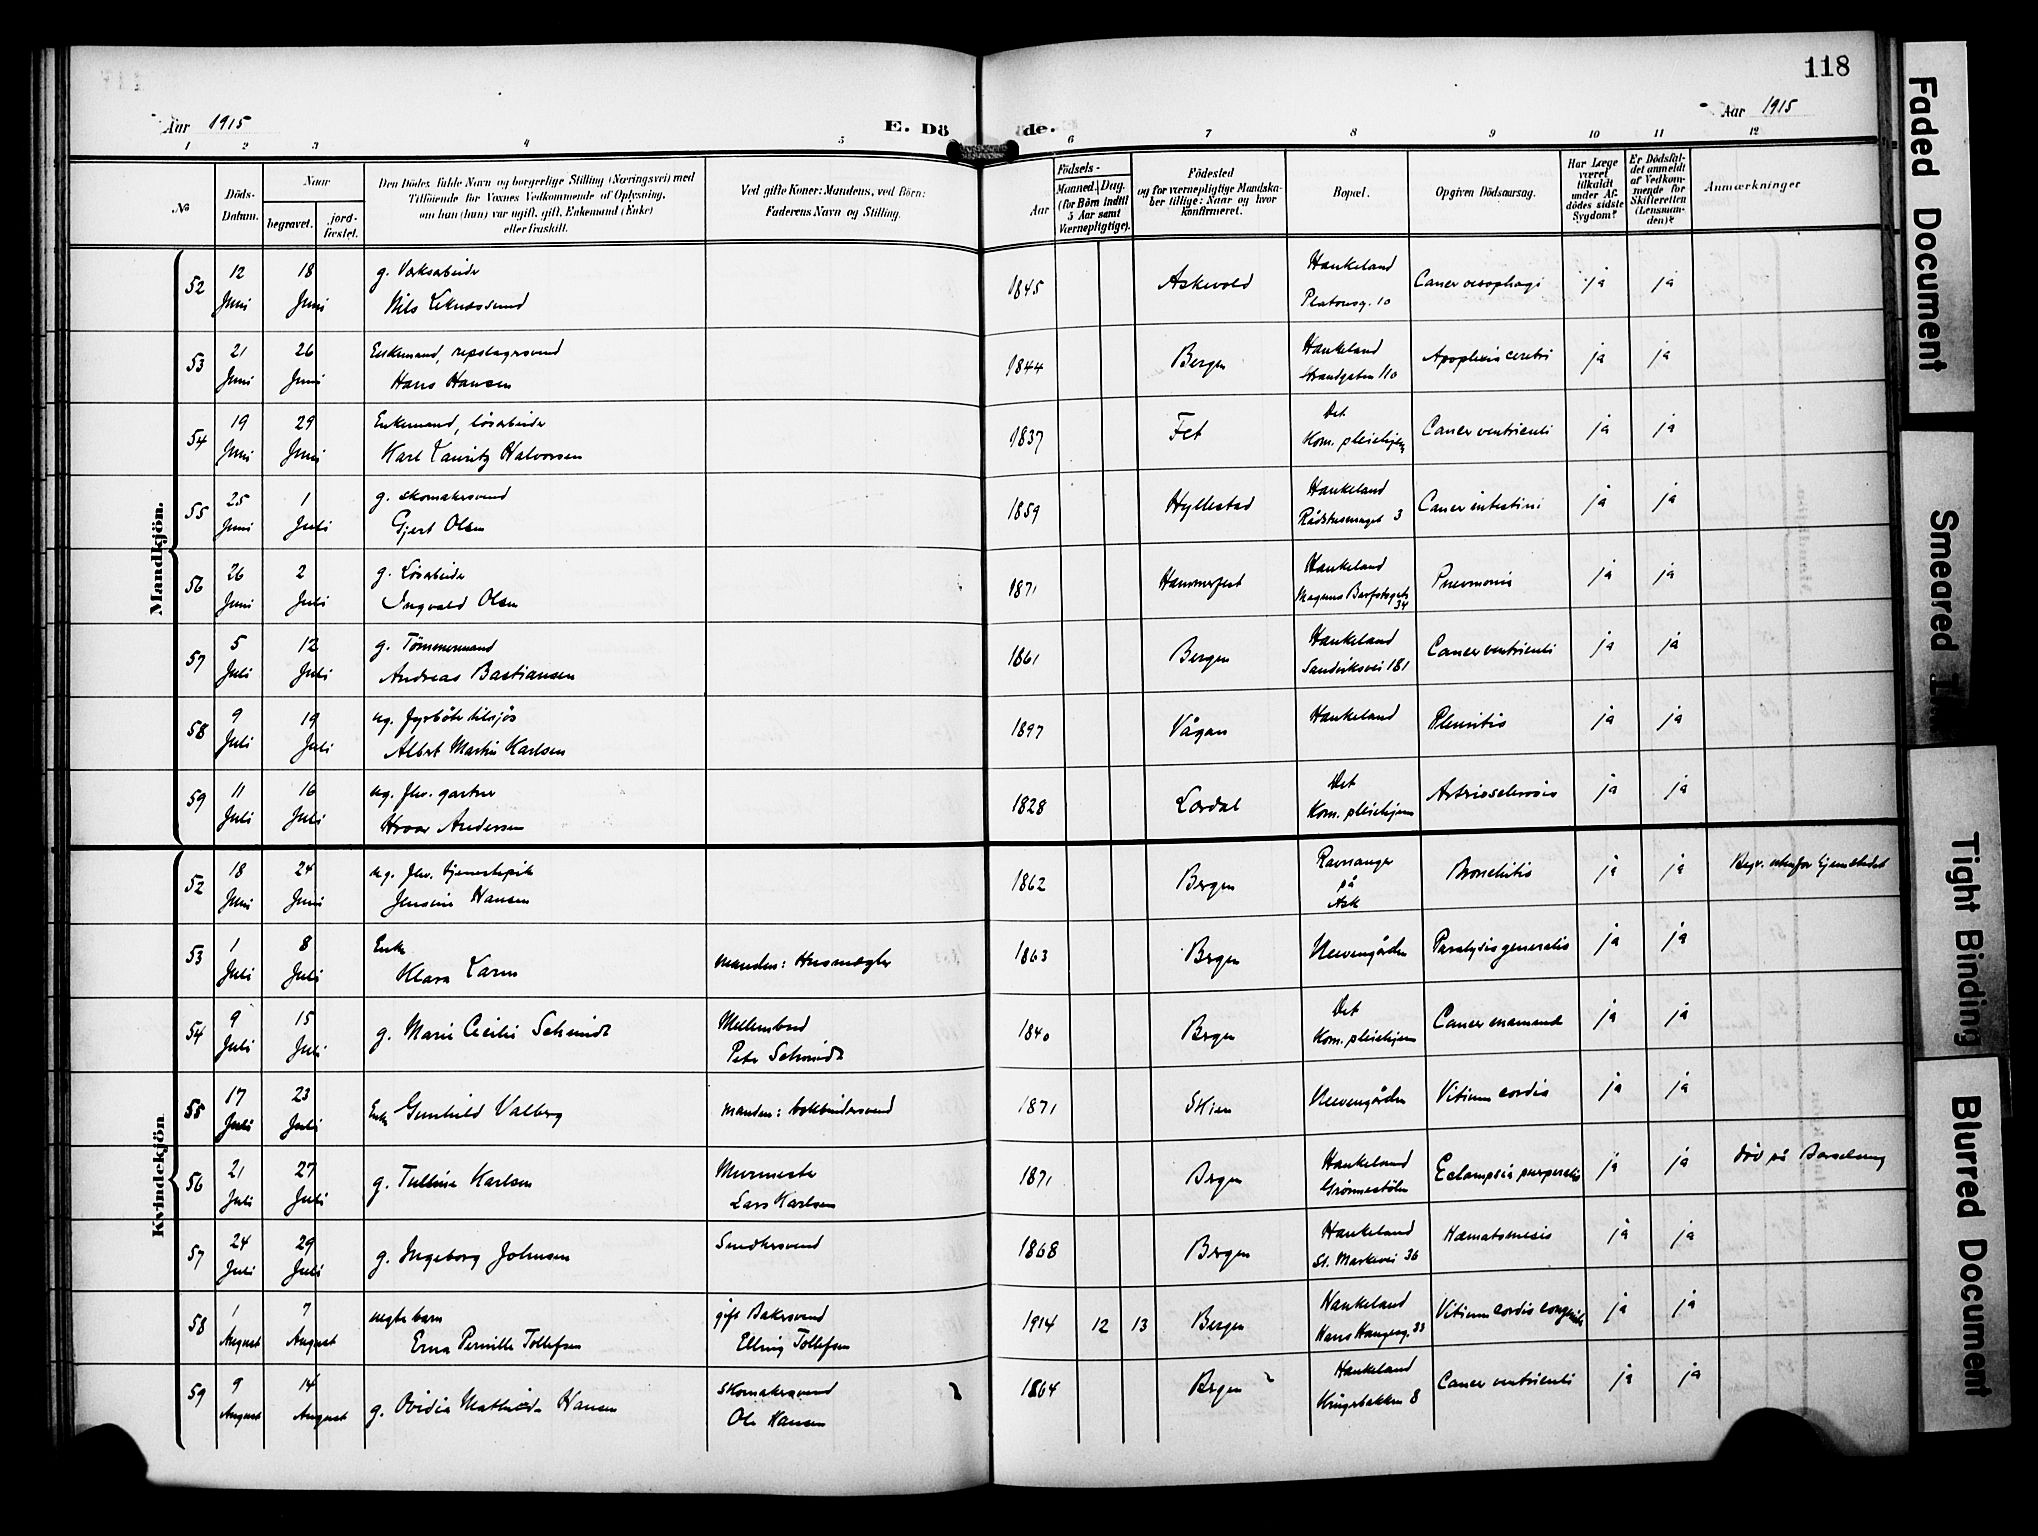 118
Aar 1915
E. Döde.
Aar 1915
1 2 3 4 5 6 7 8 9 10 11 12
№
Döds-Datum.
Naar
begravet.
jord-fæstet.
Den Dödes fulde Navn og borgerlige Stilling (Næringsvei) med
Tilföiende for Voxnes Vedkommende af Oplysning,
om han (hun) var ugift, gift, Enkemand (Enke)
eller fraskilt.
Ved gifte Koner: Mandens, ved Börn:
Faderens Navn og Stilling.
Födsels-
Aar
Maaned. Dag.
(for Börn indtil
5 Aar samt
Værnepligtige).
Födested
og for værnepligtige Mandska-
ber tillige: Naar og hvor
konfirmeret.
Bopæl.
Opgiven Dödsaarsag.
Har Læge
været
tilkaldt
under Af-
dödes sidste
Sygdom?
Er Dödsfal-
det anmeldt
af Vedkom-
mende for
Skifteretten
(Lensman-
den)?
Anmærkninger
Mandkjön.
52 12 Juni 18 Juni g. Verksarbeider Nils 1845 Askevold Haukeland Platousg. 10 Cancer oesophagi ja ja
53 21 Juni 26 Juni Enkemand, repslagersvend Hans Hansen 1844 Bergen Haukeland Strandgaten 110 Apoplexia cerebri ja ja
54 19 Juni 29 Juni Enkemand, løsarbeider Karl Lauritz Halvorsen 1837 Fet Det Kom. pleiehjem Cancer ventriculi ja ja
55 25 Juni 1 Juli g. skomakersvend Gjert Olsen 1859 Hyllestad Haukeland Rådstuesmuget 3 Cancer intestini ja ja
56 26 Juni 2 Juli g. Løsarbeider Ingvald Olsen 1871 Hammerfest Haukeland Magnus Barfotsgate 34 Pneumoni ja ja
57 5 Juli 12 Juli g. Tømmermand Andreas Bastiansen 1861 Bergen Haukeland Sandviksvei 181 Cancer ventriculi ja ja
58 9 Juli 19 Juli ug. fyrbøter tilsjøs Albert Martin Karlsen 1897 Vågan Haukeland Pleuritis ja ja
59 11 Juli 16 Juli ug. fhv. gartner Hroar Andersen 1828 Lærdal Det Kom. pleiehjem Arteriosclerosis ja ja
Kvindekjön
52 18 Juni 24 Juni ug. fhv. tjenestepike Jensine Hansen 1862 Bergen Ravnanger på Ask Bronchitis ja ja Begr. utenfor hjemstedet
53 1 Juli 8 Juli Enke Klara Larm manden: Husmægler 1863 Bergen Neevengården Paralysis generalis ja ja
54 9 Juli 15 Juli g. Marie Cecilie Schmidt Møllersvend Peter Schmidt 1840 Bergen Det Kom. pleiehjem Cancer mammæ ja ja
55 17 Juli 23 Juli Enke Gunhild Valberg manden: bokbindersvend 1871 Skien Neevengården Vitium cordis ja ja
56 21 Juli 27 Juli g. Tulline Karlsen Murmester Lars Karlsen 1871 Bergen Haukeland Grønnestølen Eclampsia puerperalis ja ja død på Barselseng
57 24 Juli 29 Juli g. Ingeborg Johnsen Snedkersvend 1868 Bergen Haukeland St. Markevei 36 Hæmatemesis ja ja
58 1 August 7 August uegte barn Erna Pernille Tollefsen gift Bakersvend Elling Tollefsen 1914 12 13 Bergen Haukeland Hans Haugesg. 33 Vitium cordis congenita ja ja
59 9 August 14 August g. Ovidia Mathilde Hansen Skomakersvend Ole Hansen 1864 Bergen Haukeland Kringsbakken 8 Cancer ventriculi ja ja
Faded Document
Smeared
Tight Binding
Blurred Document